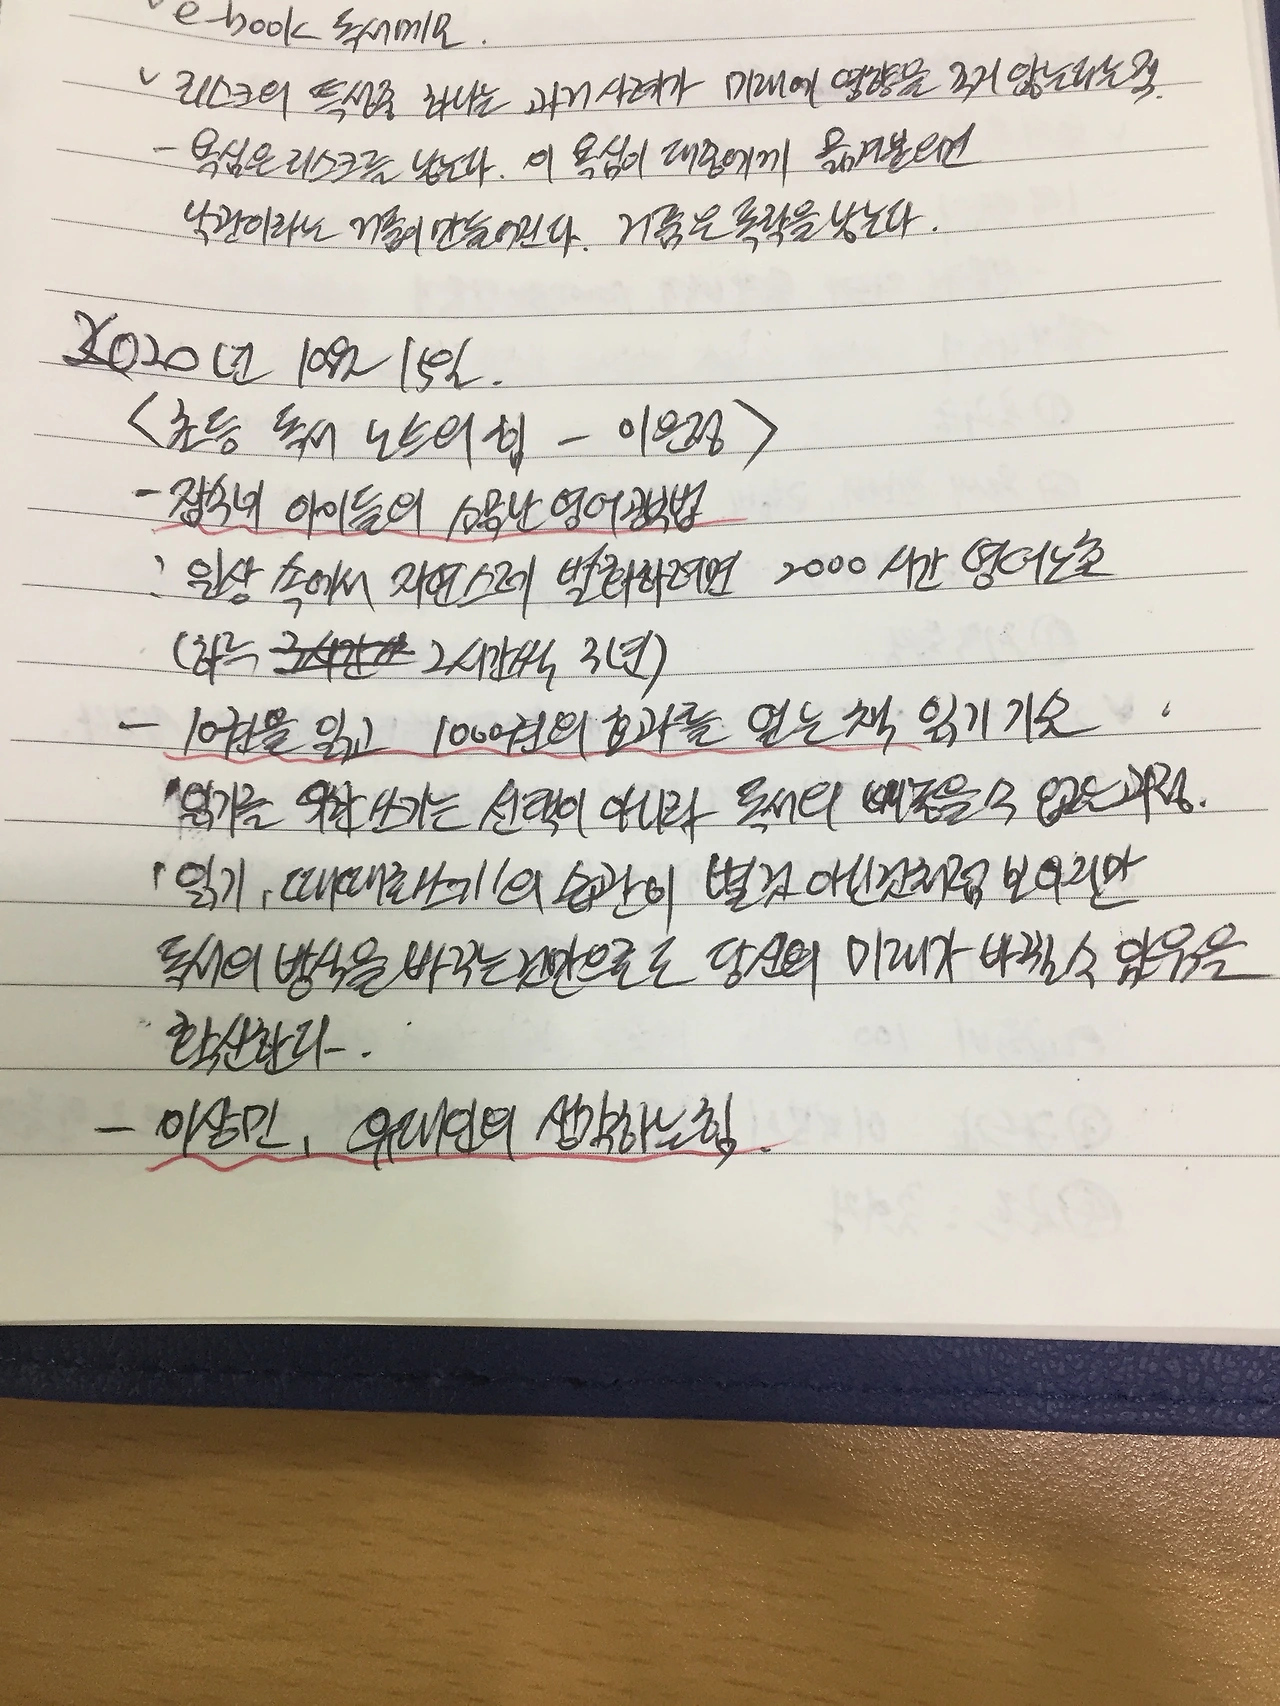 ✓ e-book 독서메모.
✓ 리스크의 특성중 하나는 과거 사례가 미래에 영향을 주지 않는다는 점.
- 욕심은 리스크를 낳는다. 이 욕심이 대중에게 옮겨붙으면
낙관이라는 거품이 만들어진다. 거품은 폭락을 낳는다.
2020년 10월 15일.
<초등 독서 노트의 힘 - 이은정>
- 잠수네 아이들의 소문난 영어공부법
: 일상 속에서 자연스레 발화하려면 2000시간 영어노출
(하루 2시간씩 3년)
- 10권을 읽고 1000권의 효과를 얻는 책 읽기 기술
'읽기를 위한 쓰기는 선택이 아니라 독서의 빼놓을 수 없는 과정.
'읽기, 때때로 쓰기'의 습관이 별것 아닌것처럼 보이지만
독서의 방식을 바꾸는 것만으로도 당신의 미래가 바뀔 수 있음을
확신한다-.
- 이상민, 유대인의 생각하는 힘.